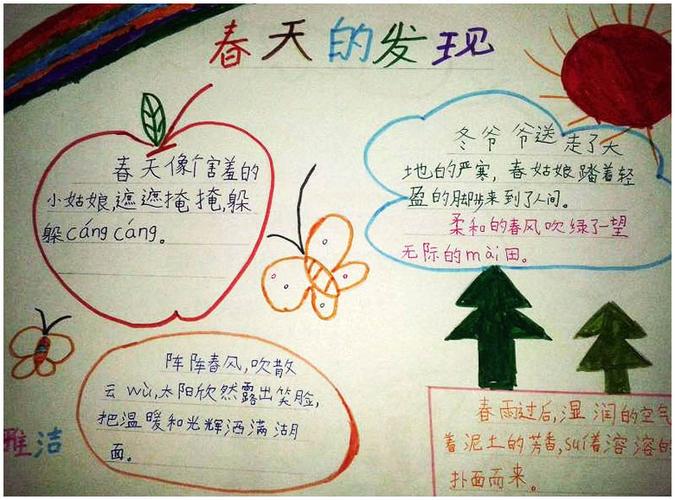 春天的发现
春天像个害羞的
小姑娘,遮遮掩掩,躲
躲cáng cáng。
冬爷爷送走了大
地的严寒，春姑娘踏着轻
盈的脚步来到了人间。
柔和的春风吹绿了一望
无际的mài田。
阵阵春风,吹散
云wù,太阳欣然露出笑脸,
把温暖和光辉洒满湖
面。
雅洁
春雨过后,湿润的空气
着泥土的芳香,suí着溶溶的
扑面而来。